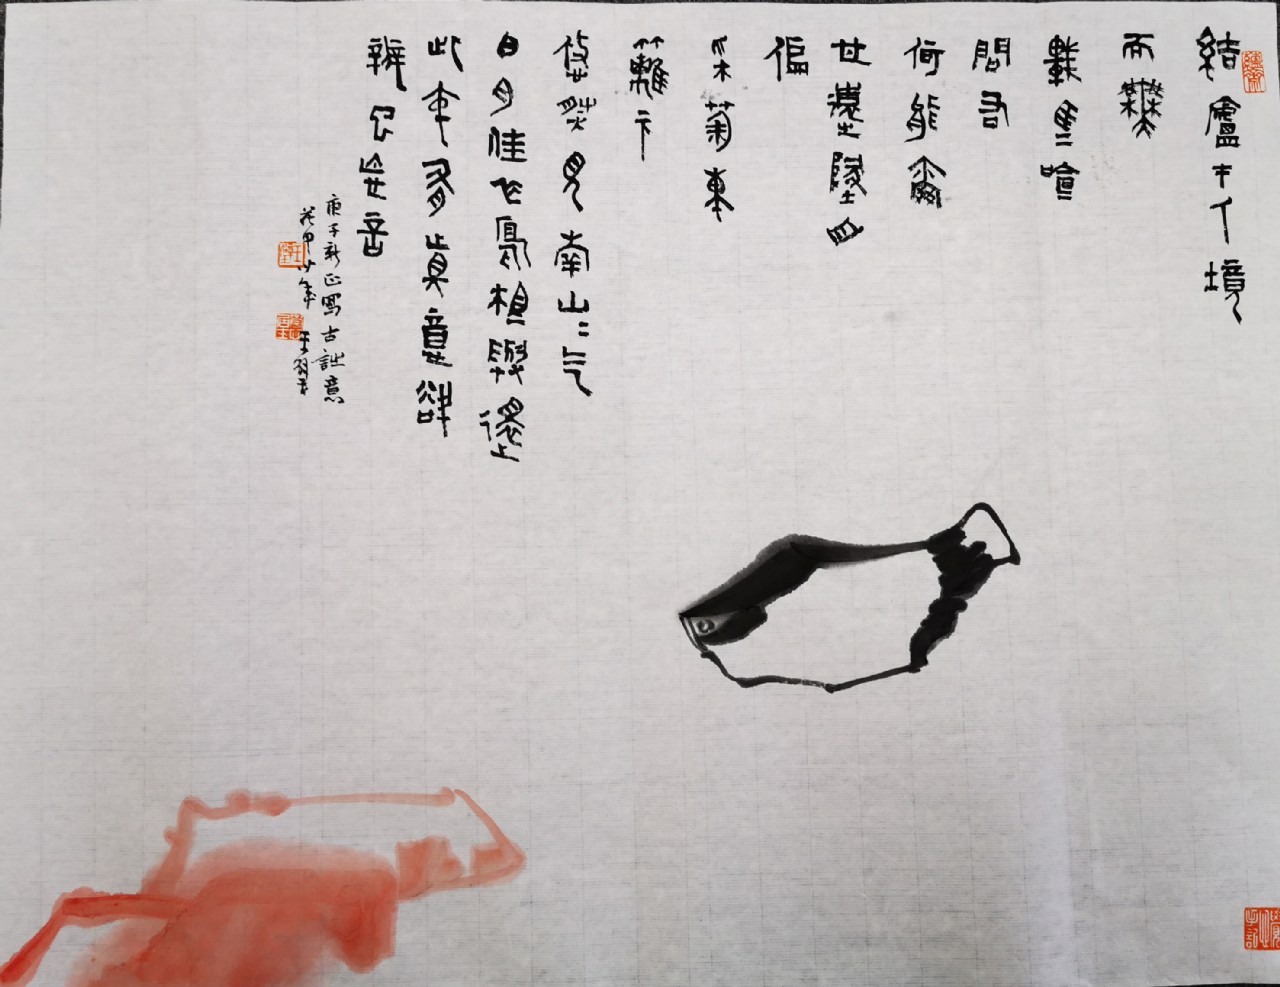 結廬在人境
而無
車馬喧
問君
何能爾
心遠地自
偏
采菊東
籬下
悠然見南山〻气
日夕佳飛鳥相與還
此中有真意欲
辨已忘言
庚子新正寫古詩意
花甲少年 王